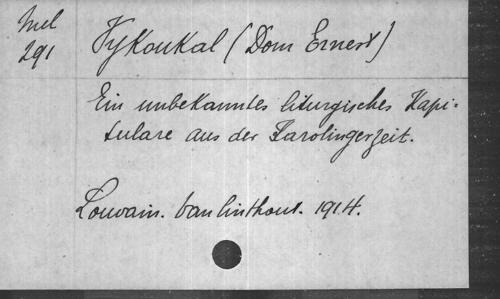 Mel
291
Vykoukal (Dom Ernest)
Ein unbekanntes liturgisches Kapi-
tulare aus der Karolingerzeit.
Louvain. van linthout. 1914.